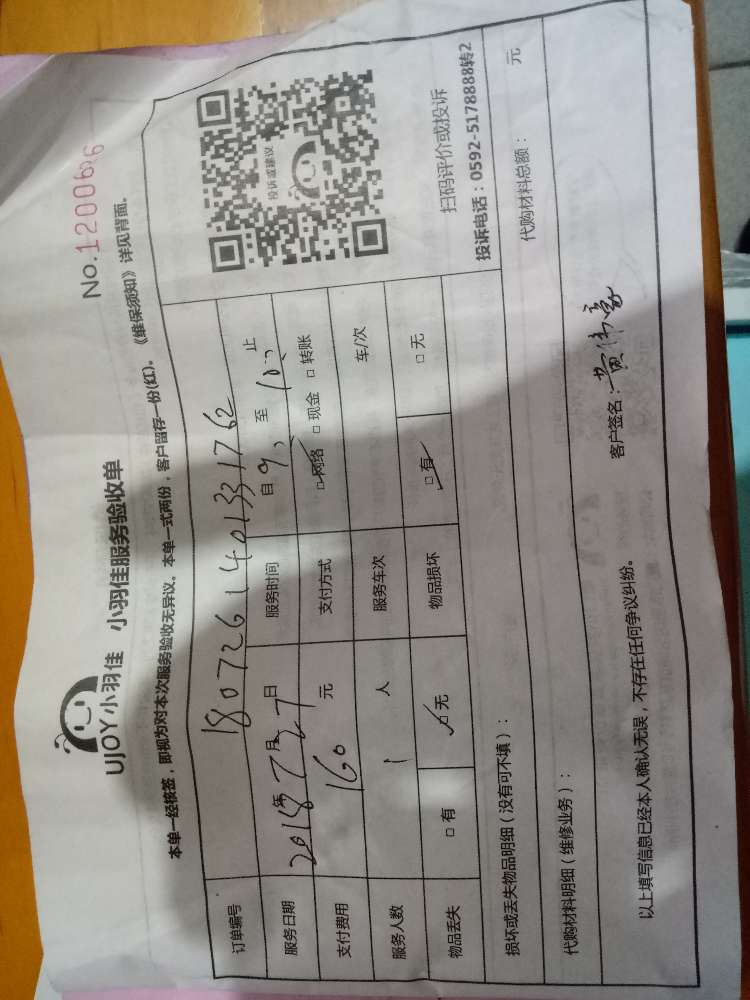 UJOY小羽佳 小羽佳服务验收单
No.1200676
本单一经核签，即视为对本次服务验收无异议。本单一式两份，客户留存一份(红)。《维保须知》详见背面。
订单编号 1807261401331762
服务日期 2018年7月27日 服务时间 自 9: 至 10: 止
支付费用 160 元 支付方式 □网络 □现金 □转账
服务人数 1 人 服务车次 车/次
物品丢失 □有 □无 物品损坏 □有 □无
投诉或建议
扫码评价或投诉
投诉电话：0592-5178888转2
损坏或丢失物品明细（没有可不填）：
代购材料明细（维修业务）： 代购材料总额： 元
以上填写信息已经本人确认无误，不存在任何争议纠纷。 客户签名：黄伟豪